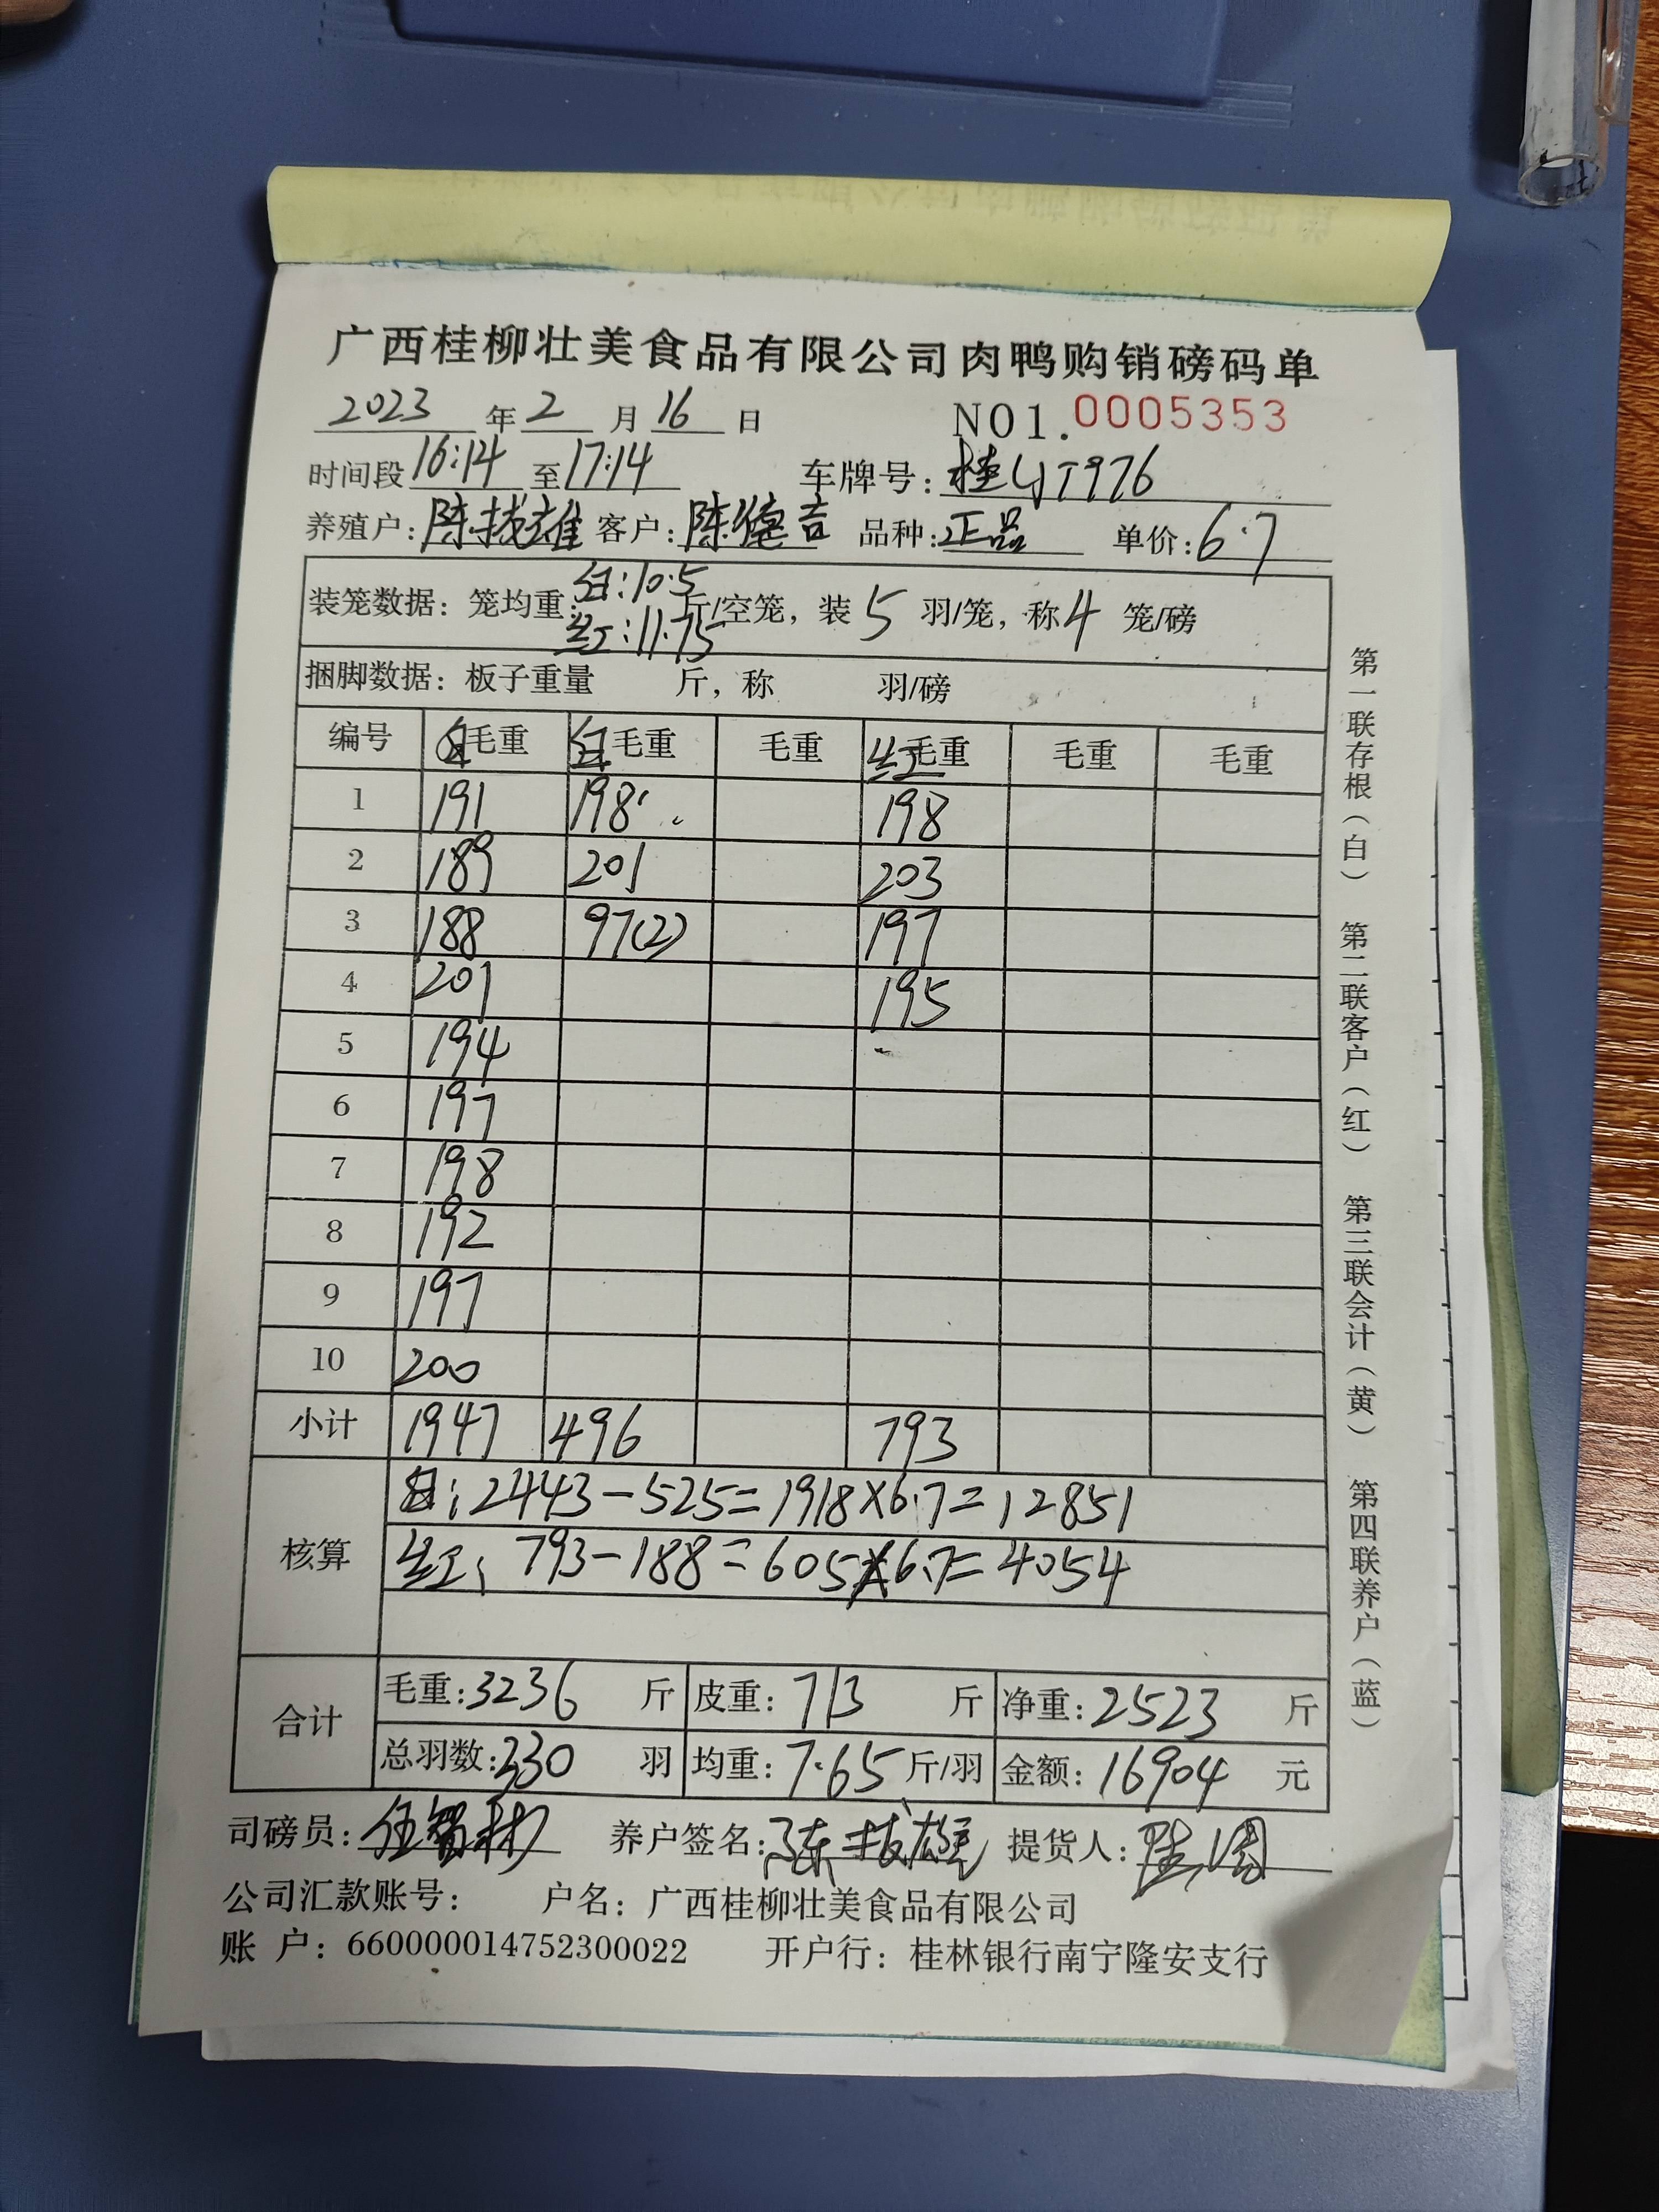 广西桂柳壮美食品有限公司肉鸭购销磅码单
2023 年 2 月 16 日 NO1.0005353
时间段 16:14 至 17:14 车牌号: 桂 T976
养殖户: 陈拔雄 客户: 陈德吉 品种: 正品 单价: 6.7
白:10.5
装笼数据: 笼均重: 斤/空笼, 装 5 羽/笼, 称 4 笼/磅
红:11.75
捆脚数据: 板子重量 斤, 称 羽/磅
编号 白毛重 白毛重 毛重 红毛重 毛重 毛重
1 191 198 198
2 189 201 203
3 188 97(2) 197
4 201 195
5 194
6 197
7 198
8 192
9 197
10 200
小计 1947 496 793
核算 白:2443-525=1918×6.7=12851
红: 793-188=605×6.7=4054
合计 毛重:3236 斤 皮重: 713 斤 净重: 2523 斤
总羽数:330 羽 均重: 7.65 斤/羽 金额: 16904 元
司磅员: 养户签名: 陈拔雄 提货人:
公司汇款账号: 户名: 广西桂柳壮美食品有限公司
账 户: 660000014752300022 开户行: 桂林银行南宁隆安支行
第一联存根(白) 第二联客户(红) 第三联会计(黄) 第四联养户(蓝)